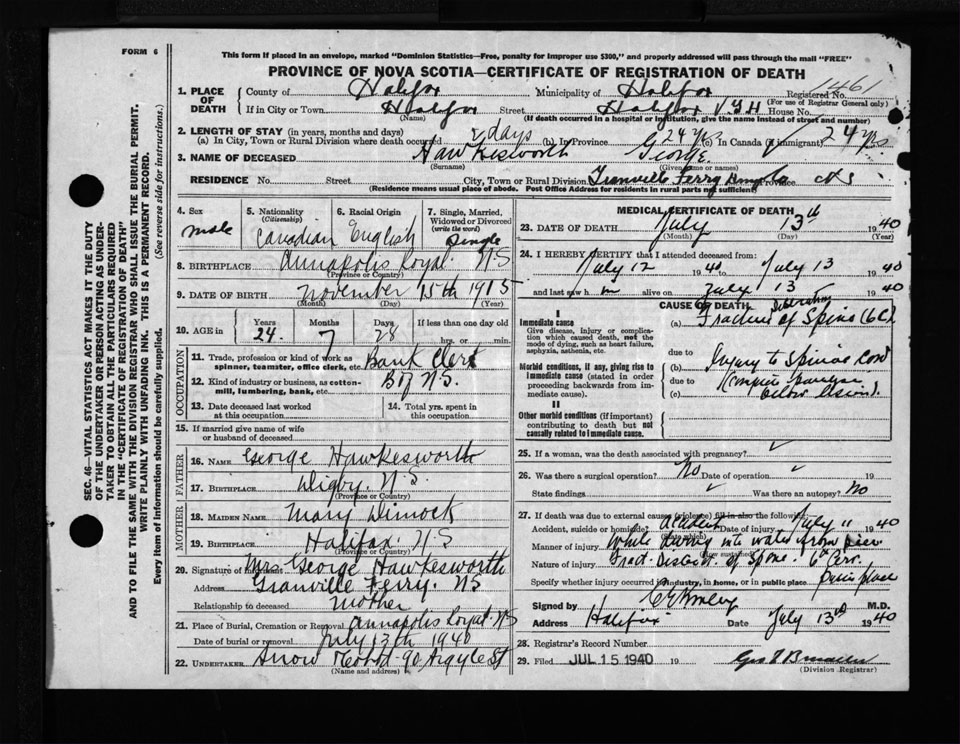 FORM 6
This form if placed in an envelope, marked "Dominion Statistics—Free, penalty for improper use $300," and properly addressed will pass through the mail "FREE"
PROVINCE OF NOVA SCOTIA—CERTIFICATE OF REGISTRATION OF DEATH
1. PLACE OF DEATH County of Halifax Municipality of Halifax Registered No. 146
(For use of Registrar General only)
If in City or Town Halifax Street Halifax V G H House No.
(Name) (If death occurred in a hospital or institution, give the name instead of street and number)
2. LENGTH OF STAY (in years, months and days)
(a) In City, Town or Rural Division where death occurred 2 days (b) In Province 24 yrs (c) In Canada (if immigrant) 24 yrs
3. NAME OF DECEASED Hawkesworth George
(Surname) (Given name or names)
RESIDENCE No. Street City, Town or Rural Division Granville Ferry N S
(Residence means usual place of abode. Post Office Address for residents in rural parts not sufficient)
SEC. 46—VITAL STATISTICS ACT MAKES IT THE DUTY
OF THE UNDERTAKER OR PERSON ACTING AS UNDER-
TAKER TO OBTAIN ALL THE PARTICULARS REQUIRED
IN THE "CERTIFICATE OF REGISTRATION OF DEATH"
AND TO FILE THE SAME WITH THE DIVISION REGISTRAR WHO SHALL ISSUE THE BURIAL PERMIT.
WRITE PLAINLY WITH UNFADING INK. THIS IS A PERMANENT RECORD.
Every item of Information should be carefully supplied. (See reverse side for instructions.)
4. Sex male
5. Nationality (Citizenship) Canadian
6. Racial Origin English
7. Single, Married, Widowed or Divorced (write the word) Single
8. BIRTHPLACE Annapolis Royal. N S
(Province or Country)
9. DATE OF BIRTH November 15th 1915
(Month) (Day) (Year)
10. AGE in Years Months Days If less than one day old
24. 7 28 hrs. or min.
OCCUPATION
11. Trade, profession or kind of work as
spinner, teamster, office clerk, etc. Bank Clerk
12. Kind of industry or business, as cotton-
mill, lumbering, bank, etc. B of N.S.
13. Date deceased last worked
at this occupation
14. Total yrs. spent in
this occupation
15. If married give name of wife
or husband of deceased
FATHER
16. NAME George Hawkesworth
17. BIRTHPLACE Digby. N.S.
(Province or Country)
MOTHER
18. MAIDEN NAME Mary Dimock
19. BIRTHPLACE Halifax N S
(Province or Country)
20. Signature of Informant Mrs. George Hawkesworth
Address Granville Ferry. NS
Relationship to deceased mother
21. Place of Burial, Cremation or Removal Annapolis Royal. N S
Date of burial or removal July 13th 1940
22. UNDERTAKER Snow 90 Argyle St
(Name and address)
MEDICAL CERTIFICATE OF DEATH
23. DATE OF DEATH July 13th 1940
(Month) (Day) (Year)
24. I HEREBY CERTIFY that I attended deceased from:
July 12 1940 to July 13 1940
and last saw h m alive on July 13 1940
CAUSE OF DEATH
I
Immediate cause
Give disease, injury or complica-
tion which caused death, not the
mode of dying, such as heart failure,
asphyxia, asthenia, etc.
(a) Fracture of Spine (6 C)
due to
Morbid conditions, if any, giving rise to
immediate cause (stated in order
proceeding backwards from im-
mediate cause).
Injury to Spinal Cord
due to
(c) (Complete Paralysis
below lesion).
II
Other morbid conditions (if important)
contributing to death but not
causally related to immediate cause.
25. If a woman, was the death associated with pregnancy?
26. Was there a surgical operation? No Date of operation 19
State findings Was there an autopsy? No
27. If death was due to external causes (violence) fill in also the following:
Accident, suicide or homicide? Accident Date of injury July 11 1940
(State which)
Manner of injury While diving into water from pier
Nature of injury Fract. of Spine. 6th Cerv.
Specify whether injury occurred in industry, in home, or in public place Public place
Signed by M.D.
Address Halifax Date July 13th 1940
28. Registrar's Record Number
29. Filed JUL 15 1940 19
(Division Registrar)